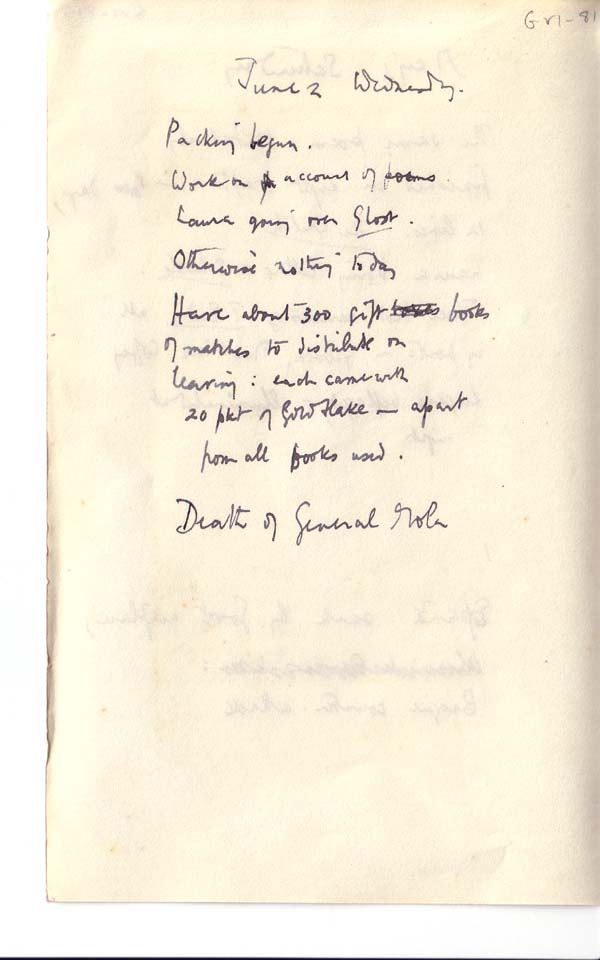 GVI-81
June 2 Wednesday.
Packing begun.
Work on account of poems.
Laura going over Ghost.
Otherwise nothing today
Have about 300 gift books
of matches to distribute on
leaving: each came with
20 pkt of Gold Flake — apart
from all books used.
Death of General Mola